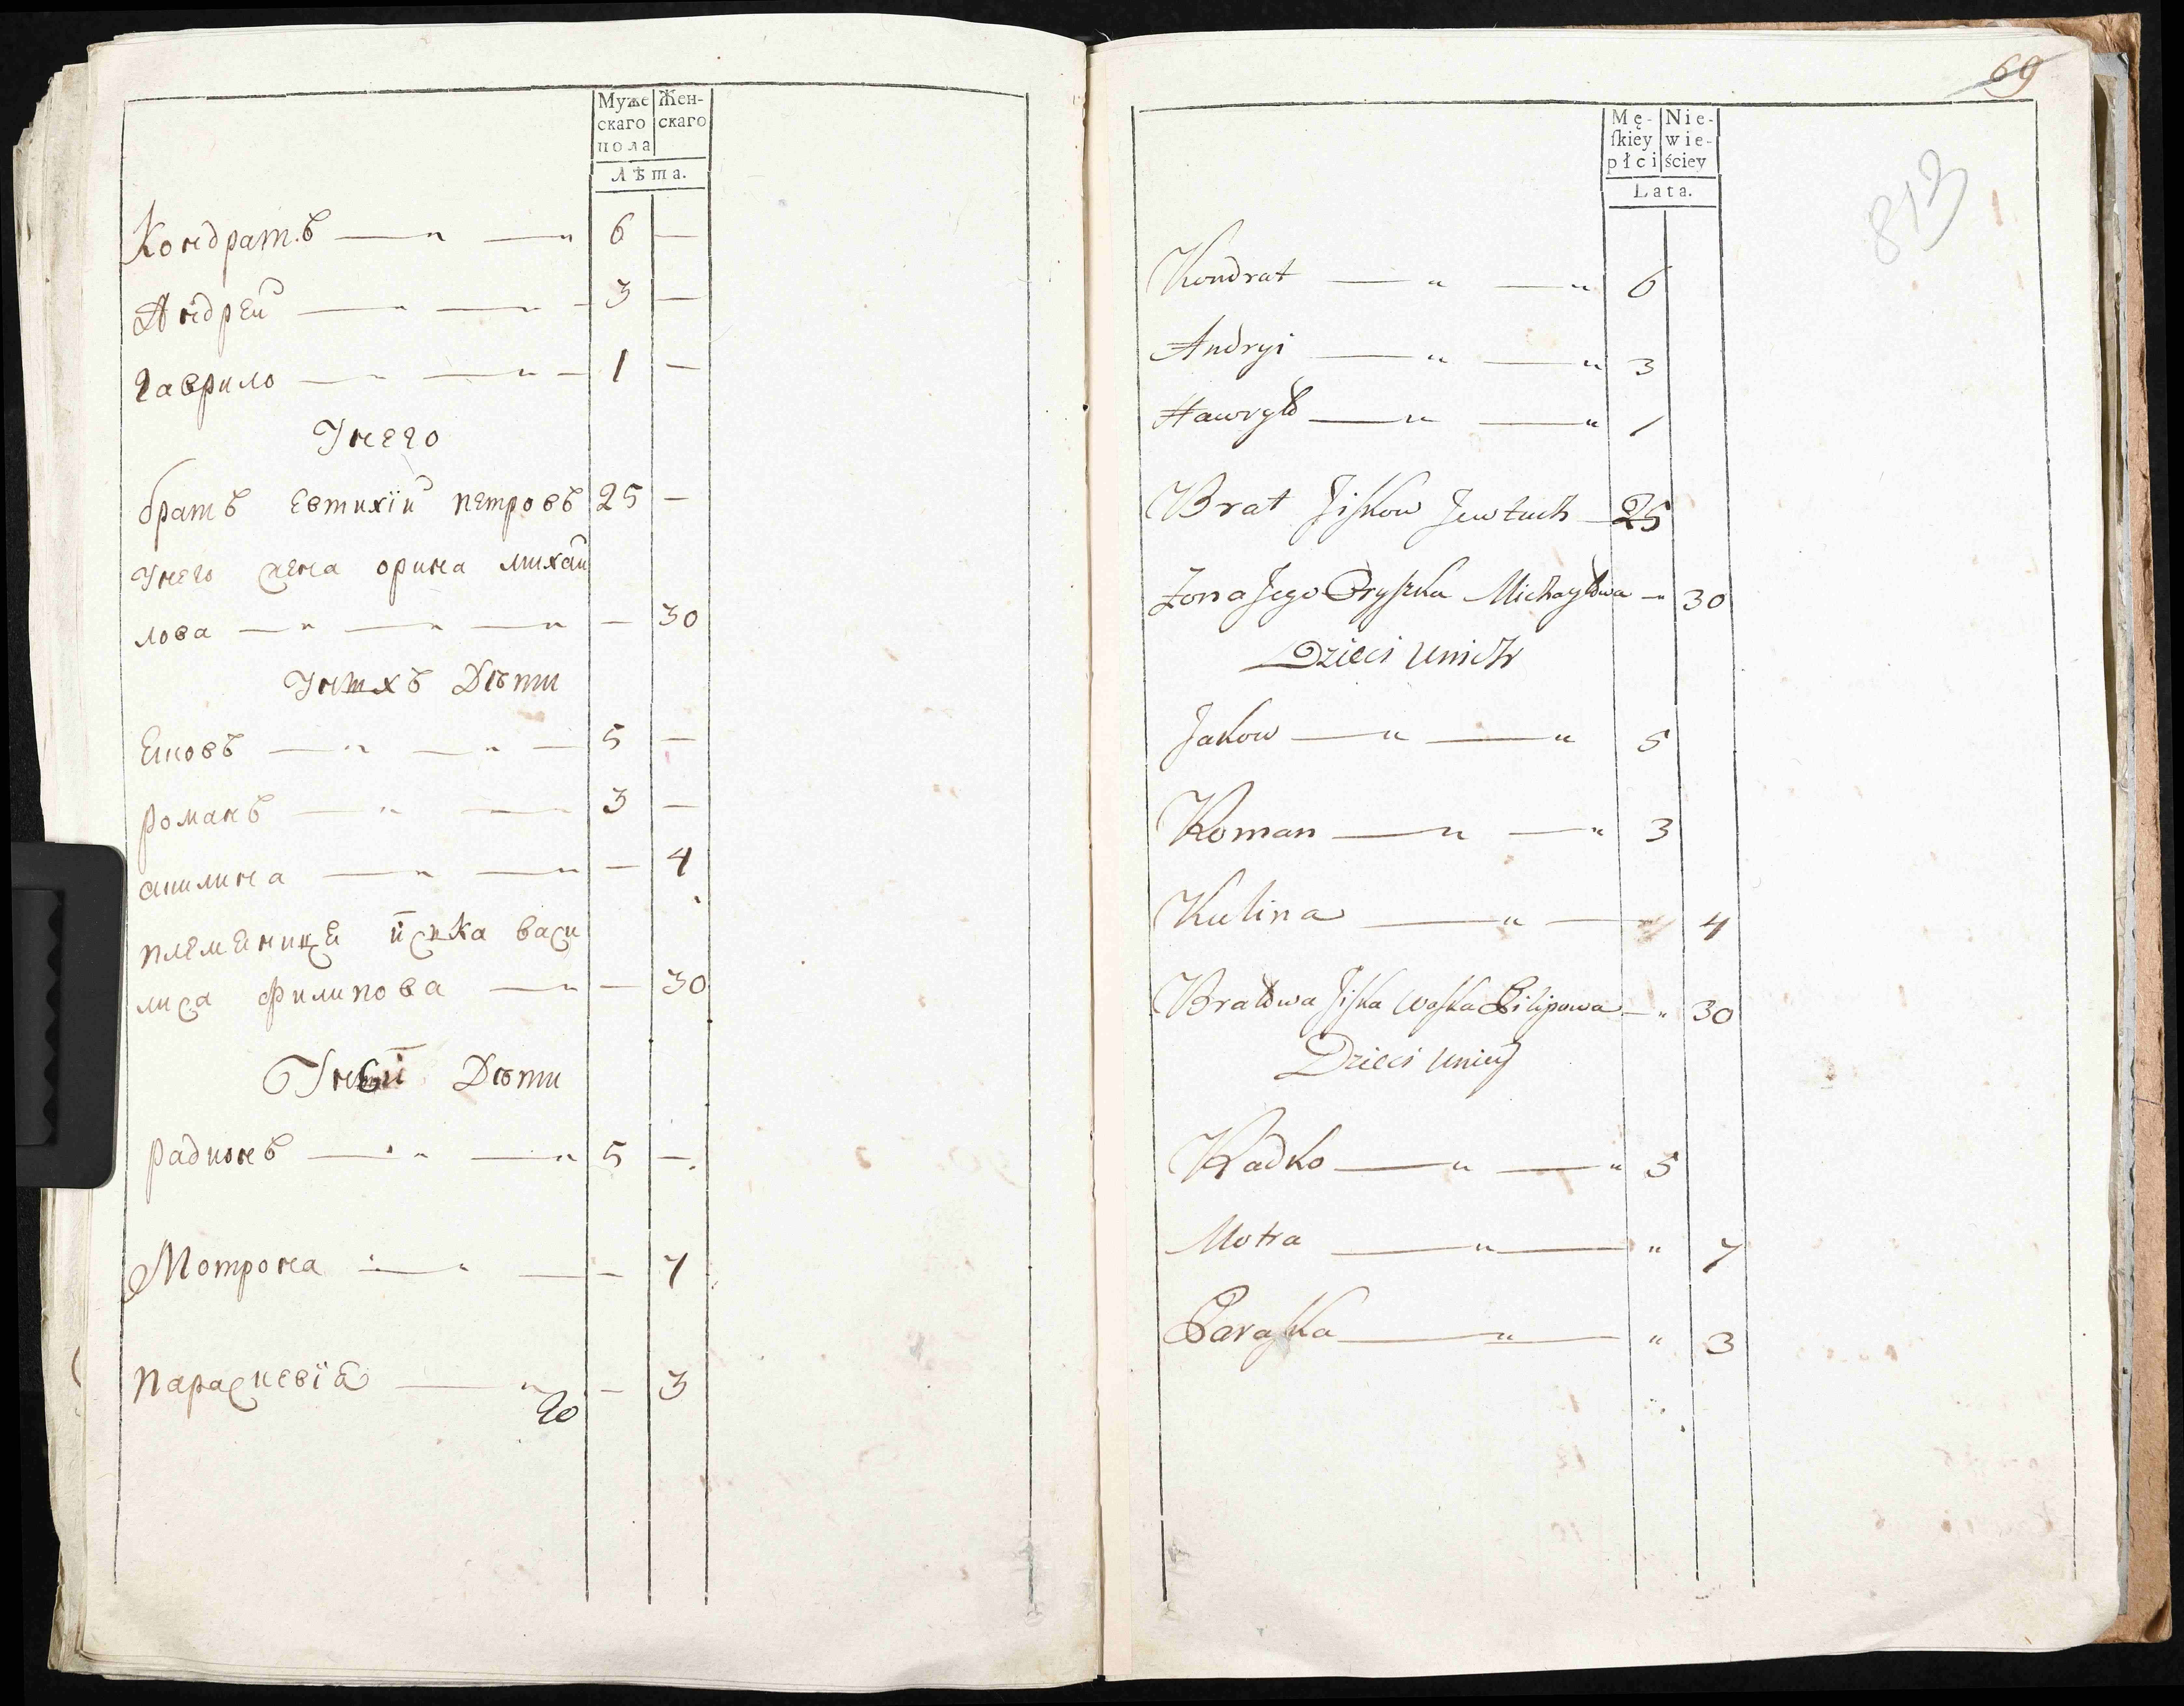 Муже Жен-
скаго скаго
пола
Лѣта.
Кондратъ 6 —
Андрей 3 —
Гаврило 1 —
Унего
братъ Евтихїй петровъ 25 —
Унего жена орина михай
лова — 30
Унихъ Дѣти
Яковъ 5 —
романъ 3 —
акилина — 4
племенице васи
лиса филипова — 30
Уней Дѣти
радионъ 5 —
Мотрона — 7
параскевїа — 3
20
69
813
Mę- Nie-
ſkiey wie-
płci ściey
Lata.
Kondrat 6
Andryi 3
Hawryło 1
Brat Jiſkow Jewtuch 25
Żona Jego Oryſzka Michayłowa 30
Dzieci unich
Jakow 5
Roman 3
Kulina 4
Bratowa Jiſka Waſka Filipowa 30
Dzieci uniey
Radko 5
Motra 7
Paraſka 3